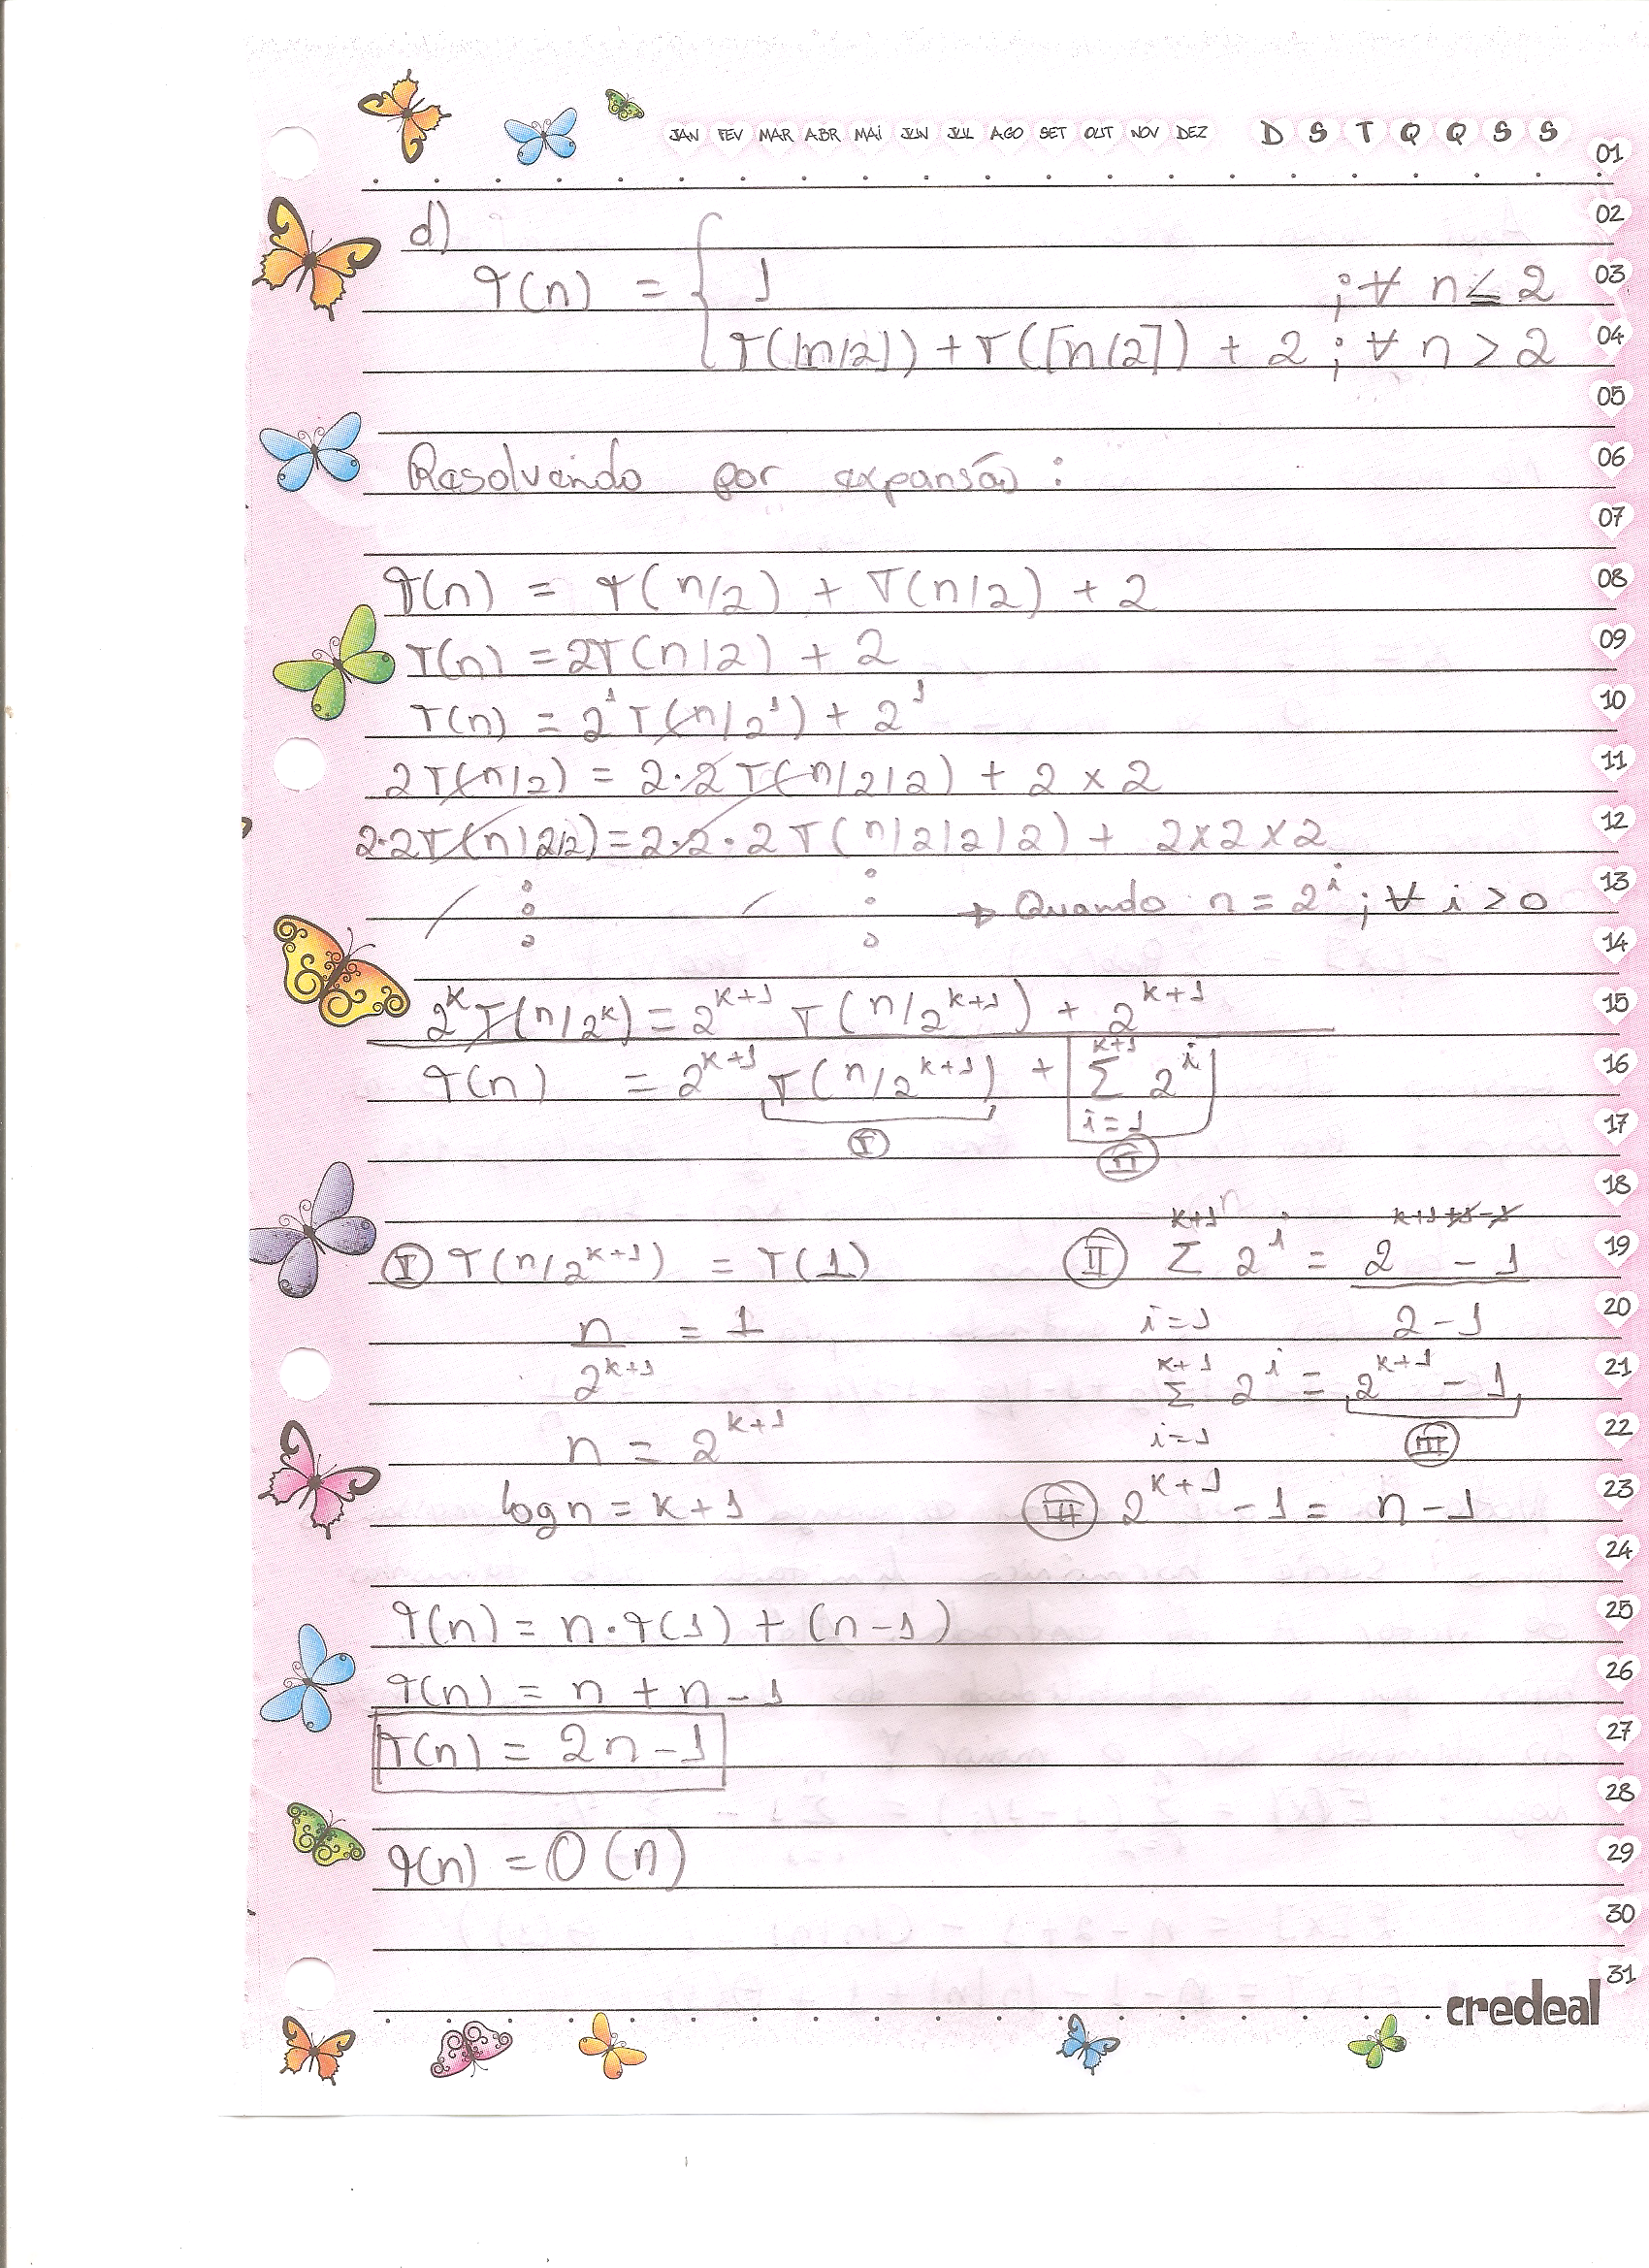 JAN FEV MAR ABR MAI JUN JUL AGO SET OUT NOV DEZ D S T Q Q S S
01
02
d)
03
T(n) = { 1 ; ∀ n ≤ 2
04
T(⌊n/2⌋) + T(⌈n/2⌉) + 2 ; ∀ n > 2
05
06
Resolvendo por expansão :
07
08
T(n) = T(n/2) + T(n/2) + 2
09
T(n) = 2T(n/2) + 2
10
T(n) = 2¹T(n/2¹) + 2¹
11
2T(n/2) = 2·2T(n/2/2) + 2 x 2
12
2·2T(n/2/2) = 2·2·2T(n/2/2/2) + 2x2x2
13
→ Quando n = 2^i ; ∀ i > 0
14
15
2^k T(n/2^k) = 2^{k+1} T(n/2^{k+1}) + 2^{k+1}
16
T(n) = 2^{k+1} T(n/2^{k+1}) + k+1 Σ 2^i
17
i=1
I II
18
k+1 n k+1+1-1
19
I T(n/2^{k+1}) = T(1) II Σ 2^i = 2 - 1
20
n = 1 i=1 2-1
21
2^{k+1} k+1 Σ 2^i = 2^{k+1} - 1
22
n = 2^{k+1} i=1 III
23
log n = k+1 III 2^{k+1} - 1 = n-1
24
25
T(n) = n·T(1) + (n-1)
26
T(n) = n + n-1
27
T(n) = 2n-1
28
29
T(n) = O(n)
30
31
credeal